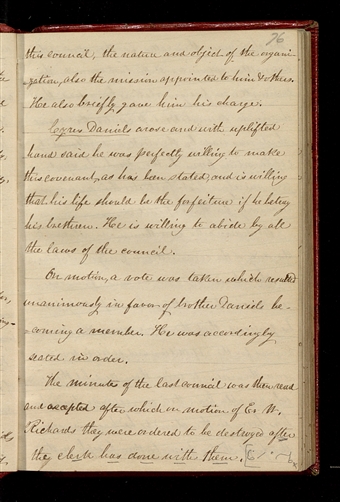 76
this council, the nature and object of the organi-
zation, also the mission appointed to him & others.
He also briefly gave him his charge.
Cyrus Daniels arose and with uplifted
hand said he was perfectly willing to make
this covenant, as has been stated, and is willing
that his life should be the forfeiture if he betray
his brethren. He is willing to abide by all
the laws of the council.
On motion, a vote was taken which resulted
unanimously in favor of brother Daniels be-
-coming a member. He was accordingly
seated in order.
The minutes of the last council was then read
and accepted after which on motion of Er W.
Richards they were ordered to be destroyed after
the clerk has done with them.